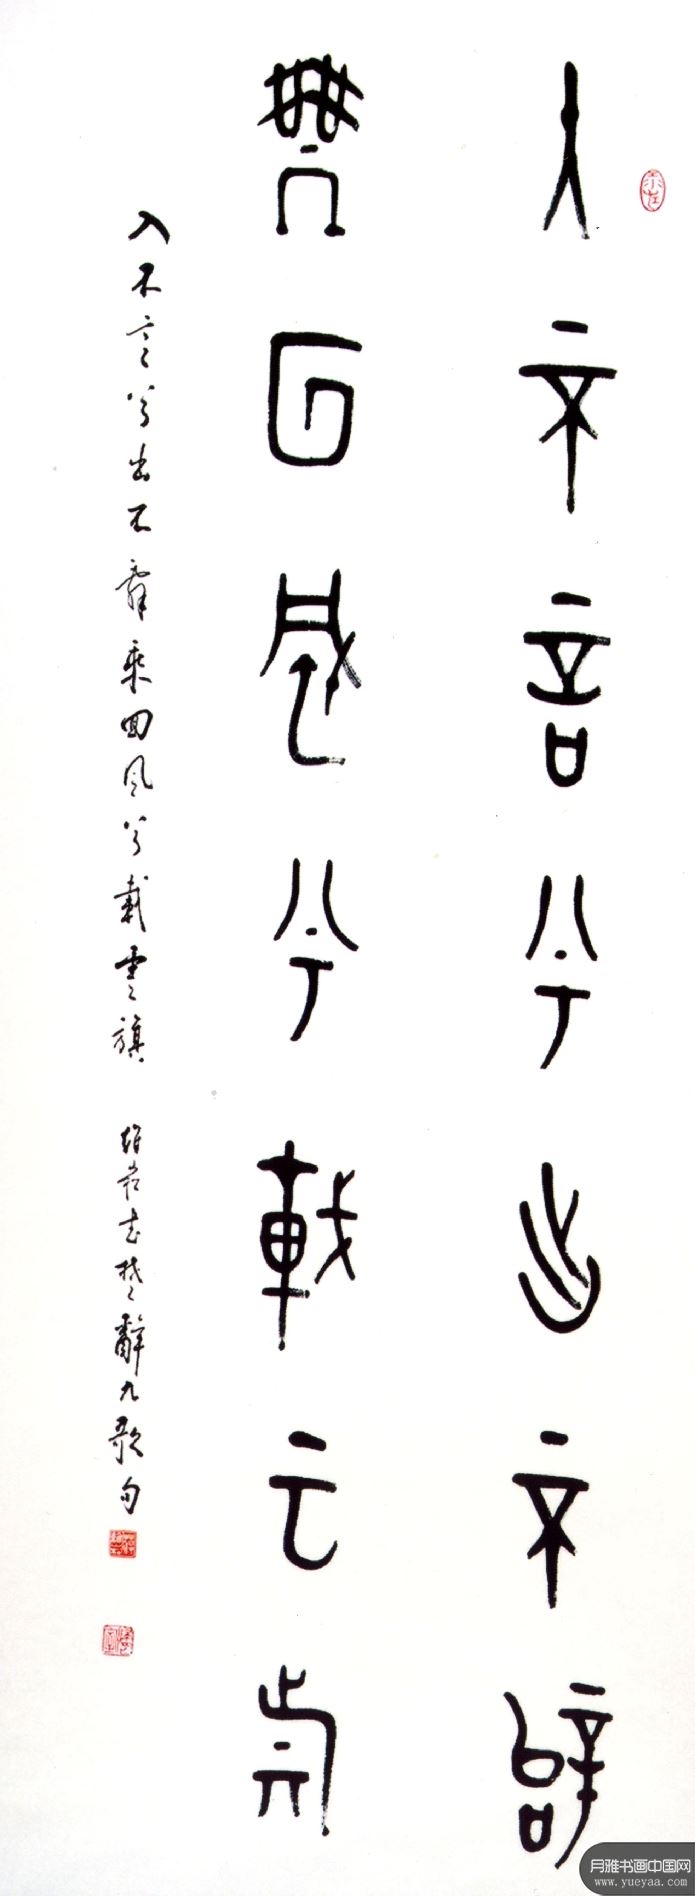 入不言兮出不辞
乘回风兮载云旗
入不言兮出不辞乘回风兮載雲旗 楚辭九歌句
月雅书画中国网
www.yueyaa.com